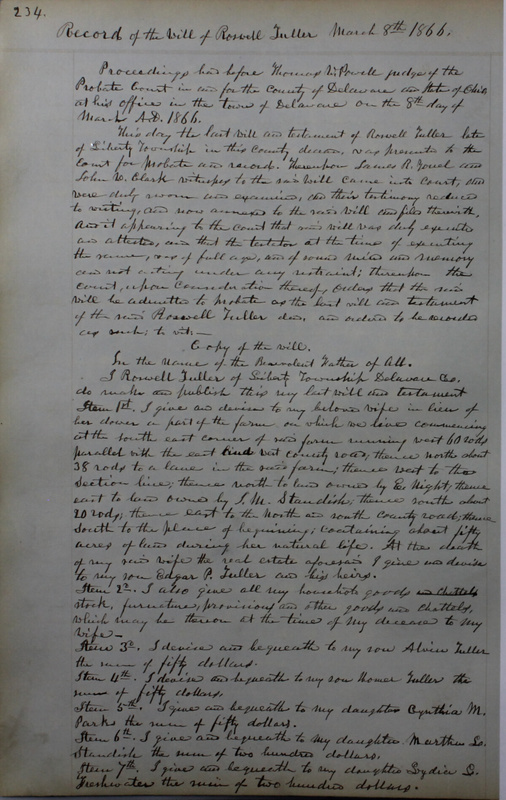 234.
Record of the Will of Roswell Fuller March 8th 1866.
Proceedings had before Thomas W. Powell judge of the
Probate Court in and for the County of Delaware and State of Ohio
at his office in the town of Delaware on the 8th day of
March A.D. 1866.
This day the last will and testament of Roswell Fuller late
of Liberty Township in this County, deceas, was presente to the
Court for probate and record. Thereupon R. and
John W. Clark witnesses to the said Will came into Court, and
were duly sworn and examine, and their testimony reduced
to writing, and now annexed to the said Will and files therewith,
And it appearing to the Court that said will was duly execute
and atteste, and that the testator at the time of executing
the same, was of full age, and of sound mind and memory
and not acting under any restraint; thereupon the
Court, upon Consideration thereof, orders that the said
will be admitted to probate as the last will and testament
of the said Roswell Fuller dec, and ordered to be recorded
as such; to wit:—
Copy of the will.
In the name of the Benevolent Father of All.
I Roswell Fuller of Liberty Township Delaware Co.
do make and publish this my last will and testament
Item 1st. I give and devise to my belove wife in lieu of
her dower a part of the farm on which we live commencing
at the south east corner of said farm running west 60 rods
parallel with the east and west county road; thence north about
38 rods to a lane in the said farm; thence west to the
section line; thence north to land owned by E. Night; thence
east to land owned by S. M. Standish; thence south about
20 rods; thence east to the North and south county road; thence
South to the place of beginning; containing about fifty
acres of land during her natural life. At the death
of my said wife the real estate aforesaid I give and devise
to my son Edgar P. Fuller and his heirs.
Item 2d. I also give all my household goods and chattels
stock, furniture, provisions and other goods and chattels,
which may be thereon at the time of my decease to my
wife—
Item 3d. I devise and bequeath to my son Alvin Fuller
the sum of fifty dollars.
Item 4th. I devise and bequeath to my son Homer Fuller the
sum of fifty dollars.
Item 5th. I give and bequeath to my daughter Cynthia M.
Parks the sum of fifty dollars.
Item 6th. I give and bequeath to my daughter Martha
Standish the sum of two hundred dollars.
Item 7th. I give and bequeath to my daughter Lydia D.
Freshwater the sum of two hundred dollars.